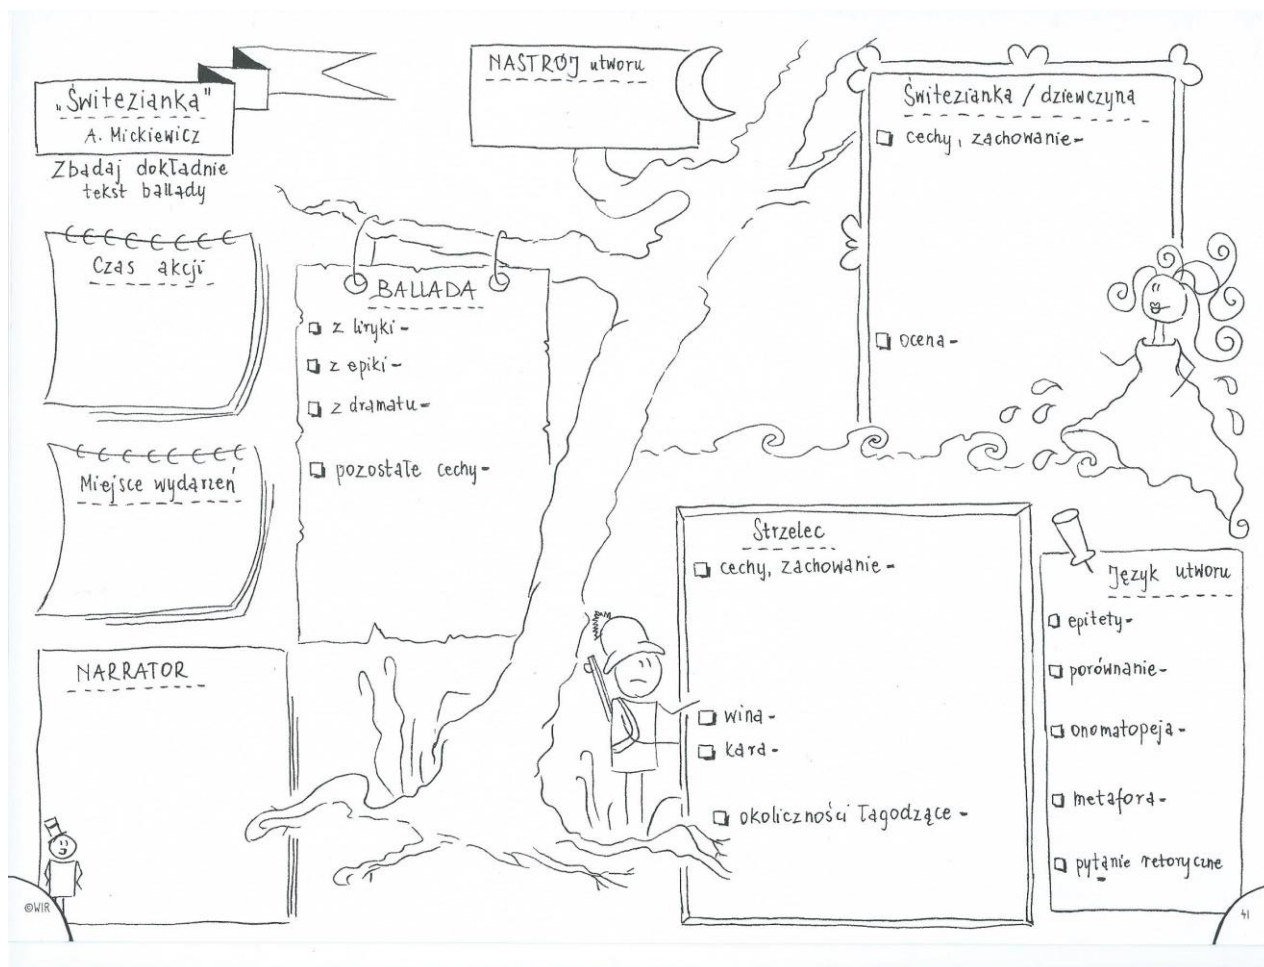 „Świtezianka"
A. Mickiewicz
Zbadaj dokładnie
tekst ballady
NASTRÓJ utworu
Świtezianka / dziewczyna
cechy, zachowanie-
ocena-
Czas akcji
BALLADA
z liryki-
z epiki-
z dramatu-
pozostałe cechy-
Miejsce wydarzeń
Strzelec
cechy, zachowanie-
wina-
kara-
okoliczności łagodzące-
Język utworu
epitety-
porównanie-
onomatopeja-
metafora-
pytanie retoryczne
NARRATOR
©WIR
41